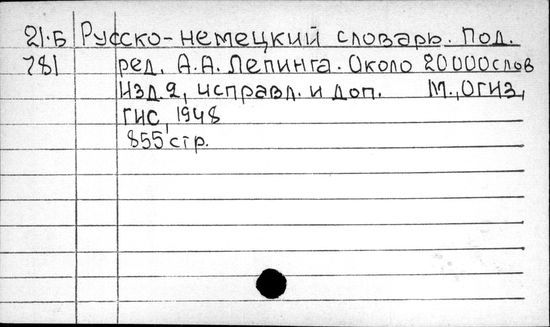 21.Б Русско-немецкий словарь. Под.
781 ред. А.А. Лепинга. Около 20000 слов
Изд. 2, исправл. и доп. М., ОГИЗ,
ГИС, 1948
855 стр.